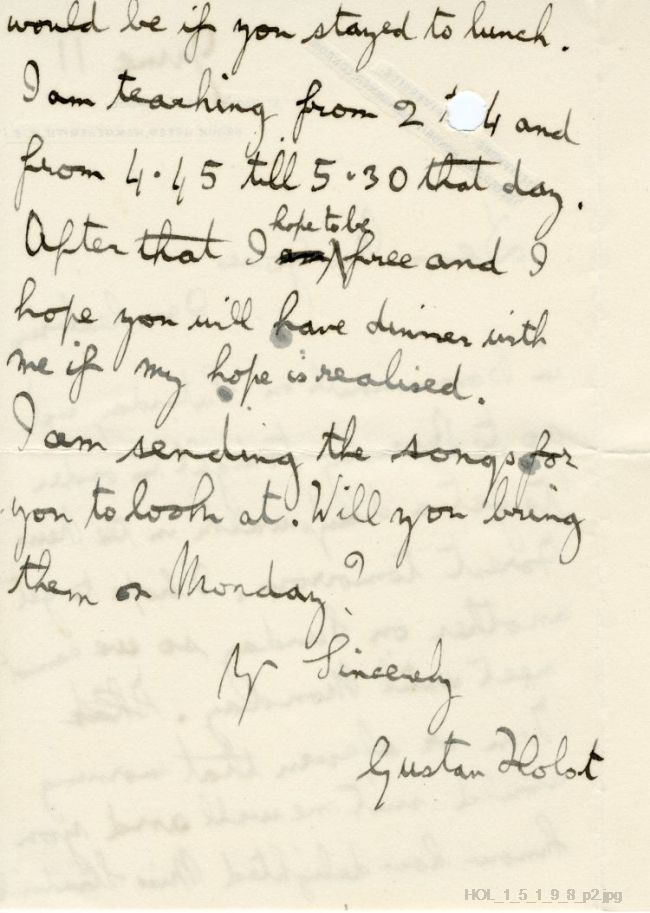 would be if you stayed to lunch.
I am teaching from 2 4 and
from 4.45 till 5.30 that day.
After that I am hope to be free and I
hope you will have dinner with
me if my hope is realised.
I am sending the songs for
you to look at. Will you bring
them on Monday?
Yr Sincerely
Gustav Holst
HOL_1_5_1_9_8_p2.jpg